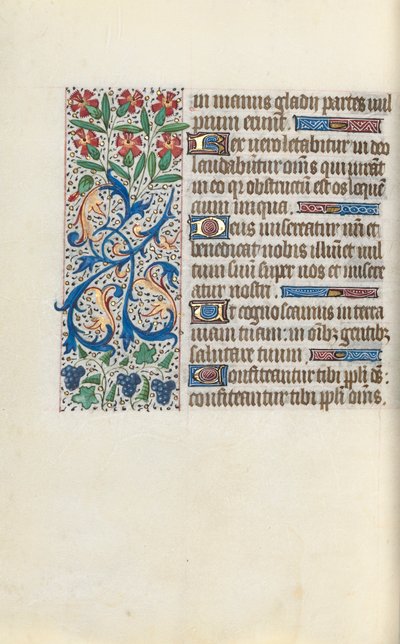 in manus gladij partes vul
pium erunt.
Rex vero letabitur in deo
laudabuntur om̄s qui iurāt
in eo qr obstructū est os loquē
cium iniqua.
Deus misereatur nr̄i et
benedicat nobis illumīet vul
tum suū super nos et misere
atur nostri.
Ut cognoscamus in terra
uiam tuam. in om̄ibz gentibz
salutare tuum.
Confiteantur tibi ppl̄i ds̄.
confiteantur tibi ppl̄i om̄s.